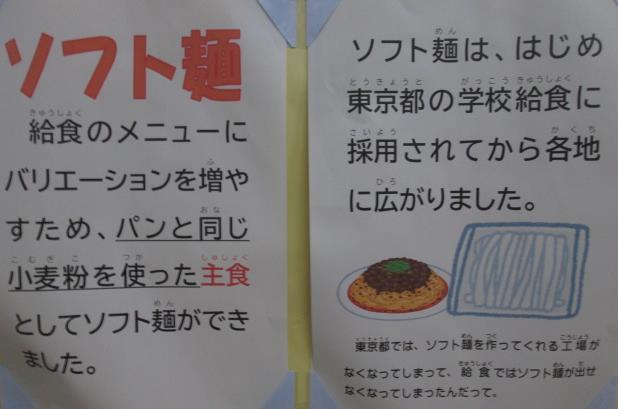 ソフト麺
給食のメニューに
バリエーションを増や
すため、パンと同じ
小麦粉を使った主食
としてソフト麺ができ
ました。
ソフト麺は、はじめ
東京都の学校給食に
採用されてから各地
に広がりました。
東京都では、ソフト麺を作ってくれる工場が
なくなってしまって、給食ではソフト麺が出せ
なくなってしまったんだって。